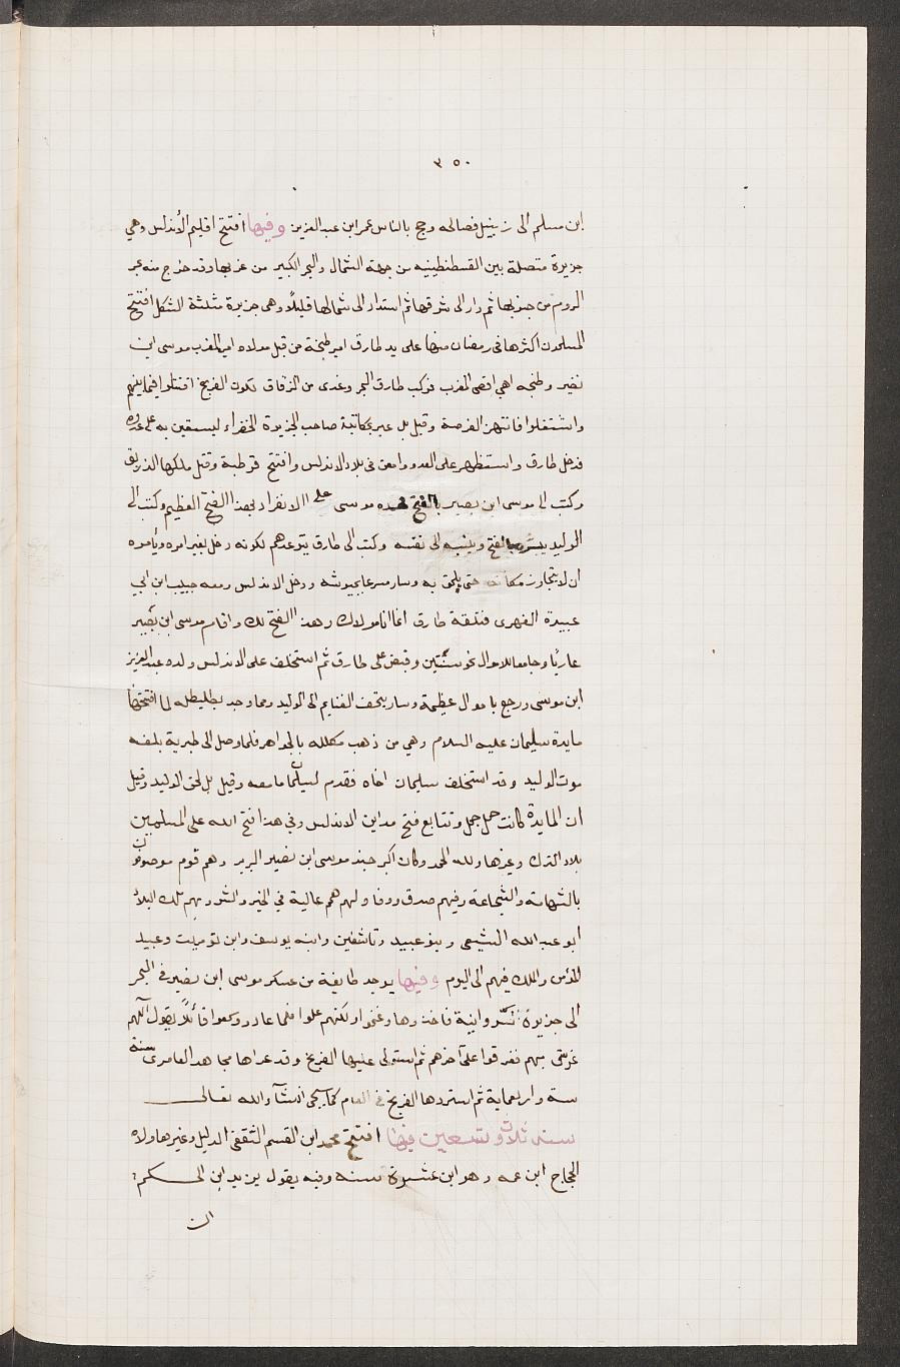 ٣٥٠
ابن مسلم الى زنبيل فصالحه وحج بالناس عمر ابن عبد العزيز وفيها افتتح اقليم الأندلس وهي
جزيرة متصلة بين القسطنطينيه من جهة الشمال والبحر الكبير من غربها وقد خرج منه بحر
الروم من جنوبها ثم دار الى شرقها ثم استدار الى شمالها قليلًا وهي جزيرة مثلثة الشكل افتتح
المسلمون اكثرها في رمضان منها على يد طارق امير طنجة من قبل مولاه امير المغرب موسى ابن
نضير وطنجه اهي اقصى المغرب فركب طارق البحر وعدى من الزقاق لكون الفرنج اقتتلوا فيما بينهم
واشتغلوا فانتهز الفرصة وقيل بل عبر بمكاتبة صاحب الجزيرة الخضراء ليستعين به على عدوه
فدخل طارق واستظهر على العدو وامعن في بلاد الاندلس وافتتح قرطبة وقتل ملكها الذريق
وكتب الى موسى ابن نصير بالفتح فحسده موسى على الانفراد بهذا الفتح العظيم وكتب الى
الوليد يبشره بالفتح وينسبه الى نفسه وكتب الى طارق يتوعدهم لكونه دخل بغير امره ويأمره
ان لا يتجاوز مكانه حتى يلحق به وسار مسرعا بجيوشه ودخل الاندلس ومعه حبيب ابن ابي
عبيدة الفهرى فتلقة طارق انما انا مولاك وهذا الفتح لك واقام موسى ابن نصير
غازيًا وجامعا للاموال نحو سنتين وقبض على طارق ثم استخلف على الاندلس ولده عبد العزيز
ابن موسى ورجع باموال عظيمة وسار بتحف الغنايم الى الوليد ومما وجد بطليطله لما افتتحها
مايدة سليمان عليه السلام وهي من ذهب مكلله بالجواهر فلما وصل الى طبرية بلغه
موت الوليد وقد استخلف سليمان اخاه فقدم لسليمان ما معه وقيل بل لحق الوليد وقيل
ان المايدة كانت حمل جمل وتتابع فتح مداين الاندلس وفي هذا فتح الله على المسلمين
بلاد الترك وغيرها ولله الحمد وكان اكبر جند موسى ابن نصير البربر وهم قوم موصوفون
بالشهامة والشجاعة وفيهم صدق ووفا ولهم همم عالية في الخير والشر وبهم ملك البلاد
ابو عبد الله الشيعى وبنو عبيد وتاشفين وابنه يوسف وابن تومرت وعبد
المؤمن والملك فيهم الى اليوم وفيها توجد طايفة من عسكر موسى ابن نضير في البحر
الى جزيرة سردانية فاخذوها وغنموا ولكنهم غلوا فلما عادوا سمعوا قائلًا يقول اللهم
غرق بهم فغرقوا على آخرهم ثم استولى عليها الفرنج وقد غزاها مجاهد العامرى سنة
ستة واربعماية ثم استردها الفرنج في العام كما سيجى انشآء الله تعالى
سنة ثلاث وتسعين فيها افتتح محمد ابن القسم الثقفى الدبل وغيرها ولاه
الحجاج ابن عمه وهو ابن عشرة سنه وفيه يقول يزيد ابن الحكم: